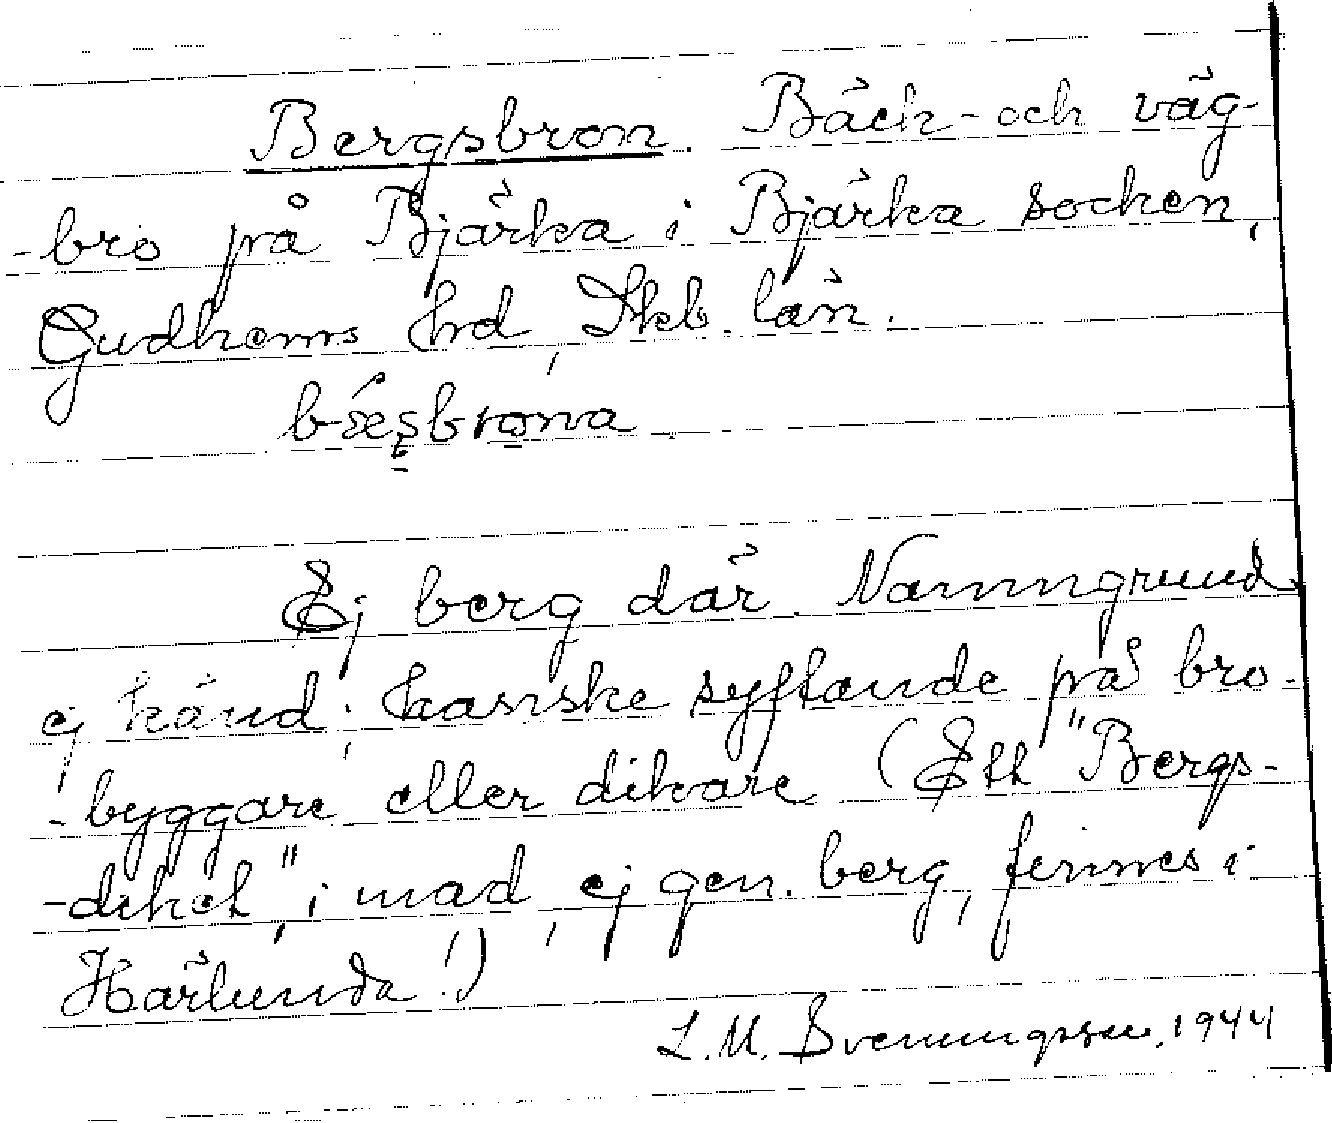 Bergsbron. Bäck- och väg-
-bro på Bjärka i Bjärka socken,
Gudhems hrd, Skb. län.
Ej berg där. Namngrund
ej känd; kanske syftande på bro-
-byggare eller dikare (Ett "Bergs-
-diket", i mad, ej gen. berg, finnes i
Härlunda!)
L. M. Svenungsson, 1944